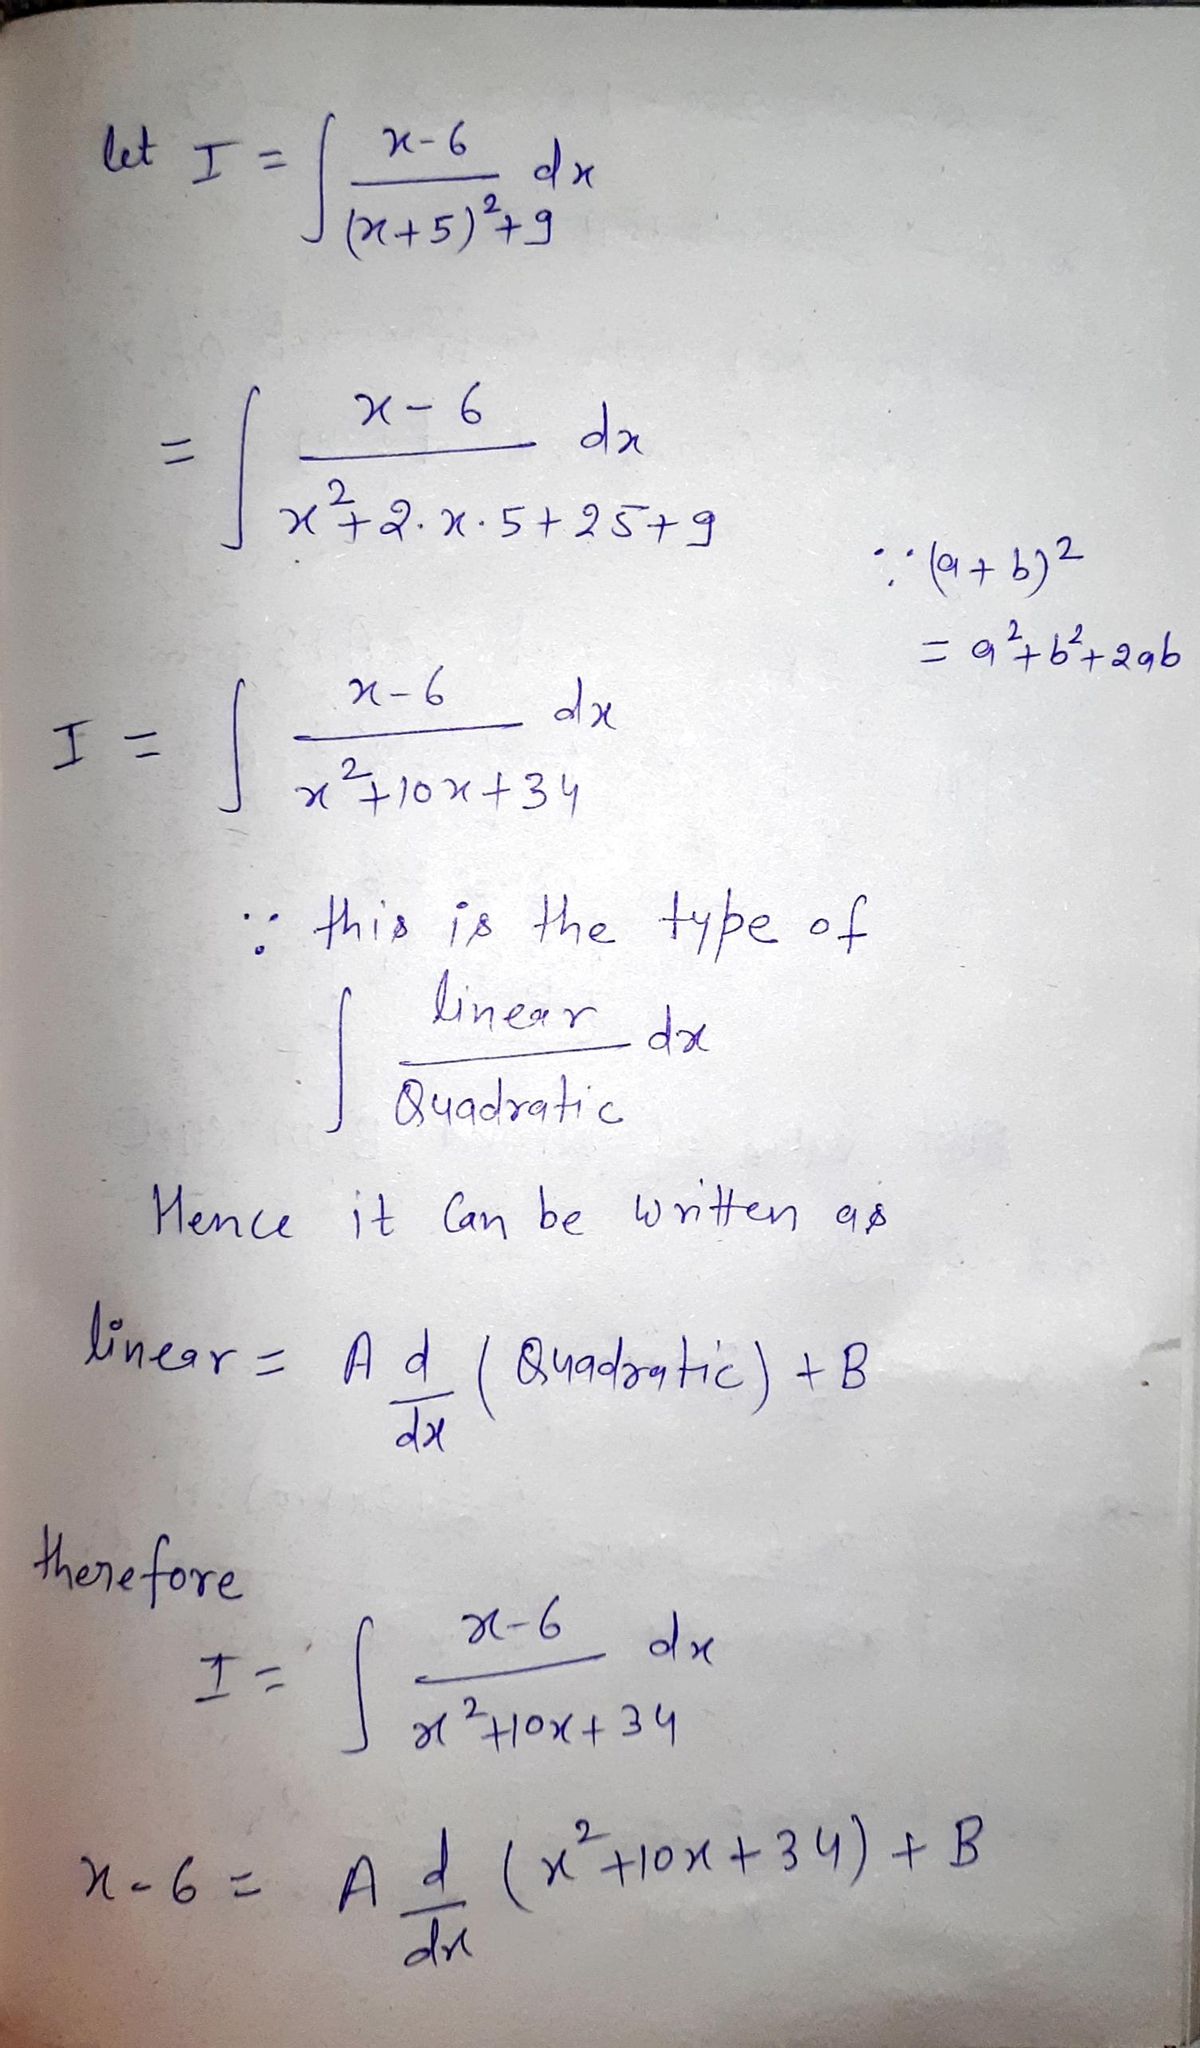 let I = ∫ (x-6)/((x+5)²+9) dx
= ∫ (x-6)/(x²+2.x.5+25+9) dx
∵ (a+b)²
= a²+b²+2ab
I = ∫ (x-6)/(x²+10x+34) dx
∵ this is the type of
∫ linear/Quadratic dx
Hence it Can be written as
linear = A d/dx (Quadratic) + B
therefore
I = ∫ (x-6)/(x²+10x+34) dx
x-6 = A d/dx (x²+10x+34) + B